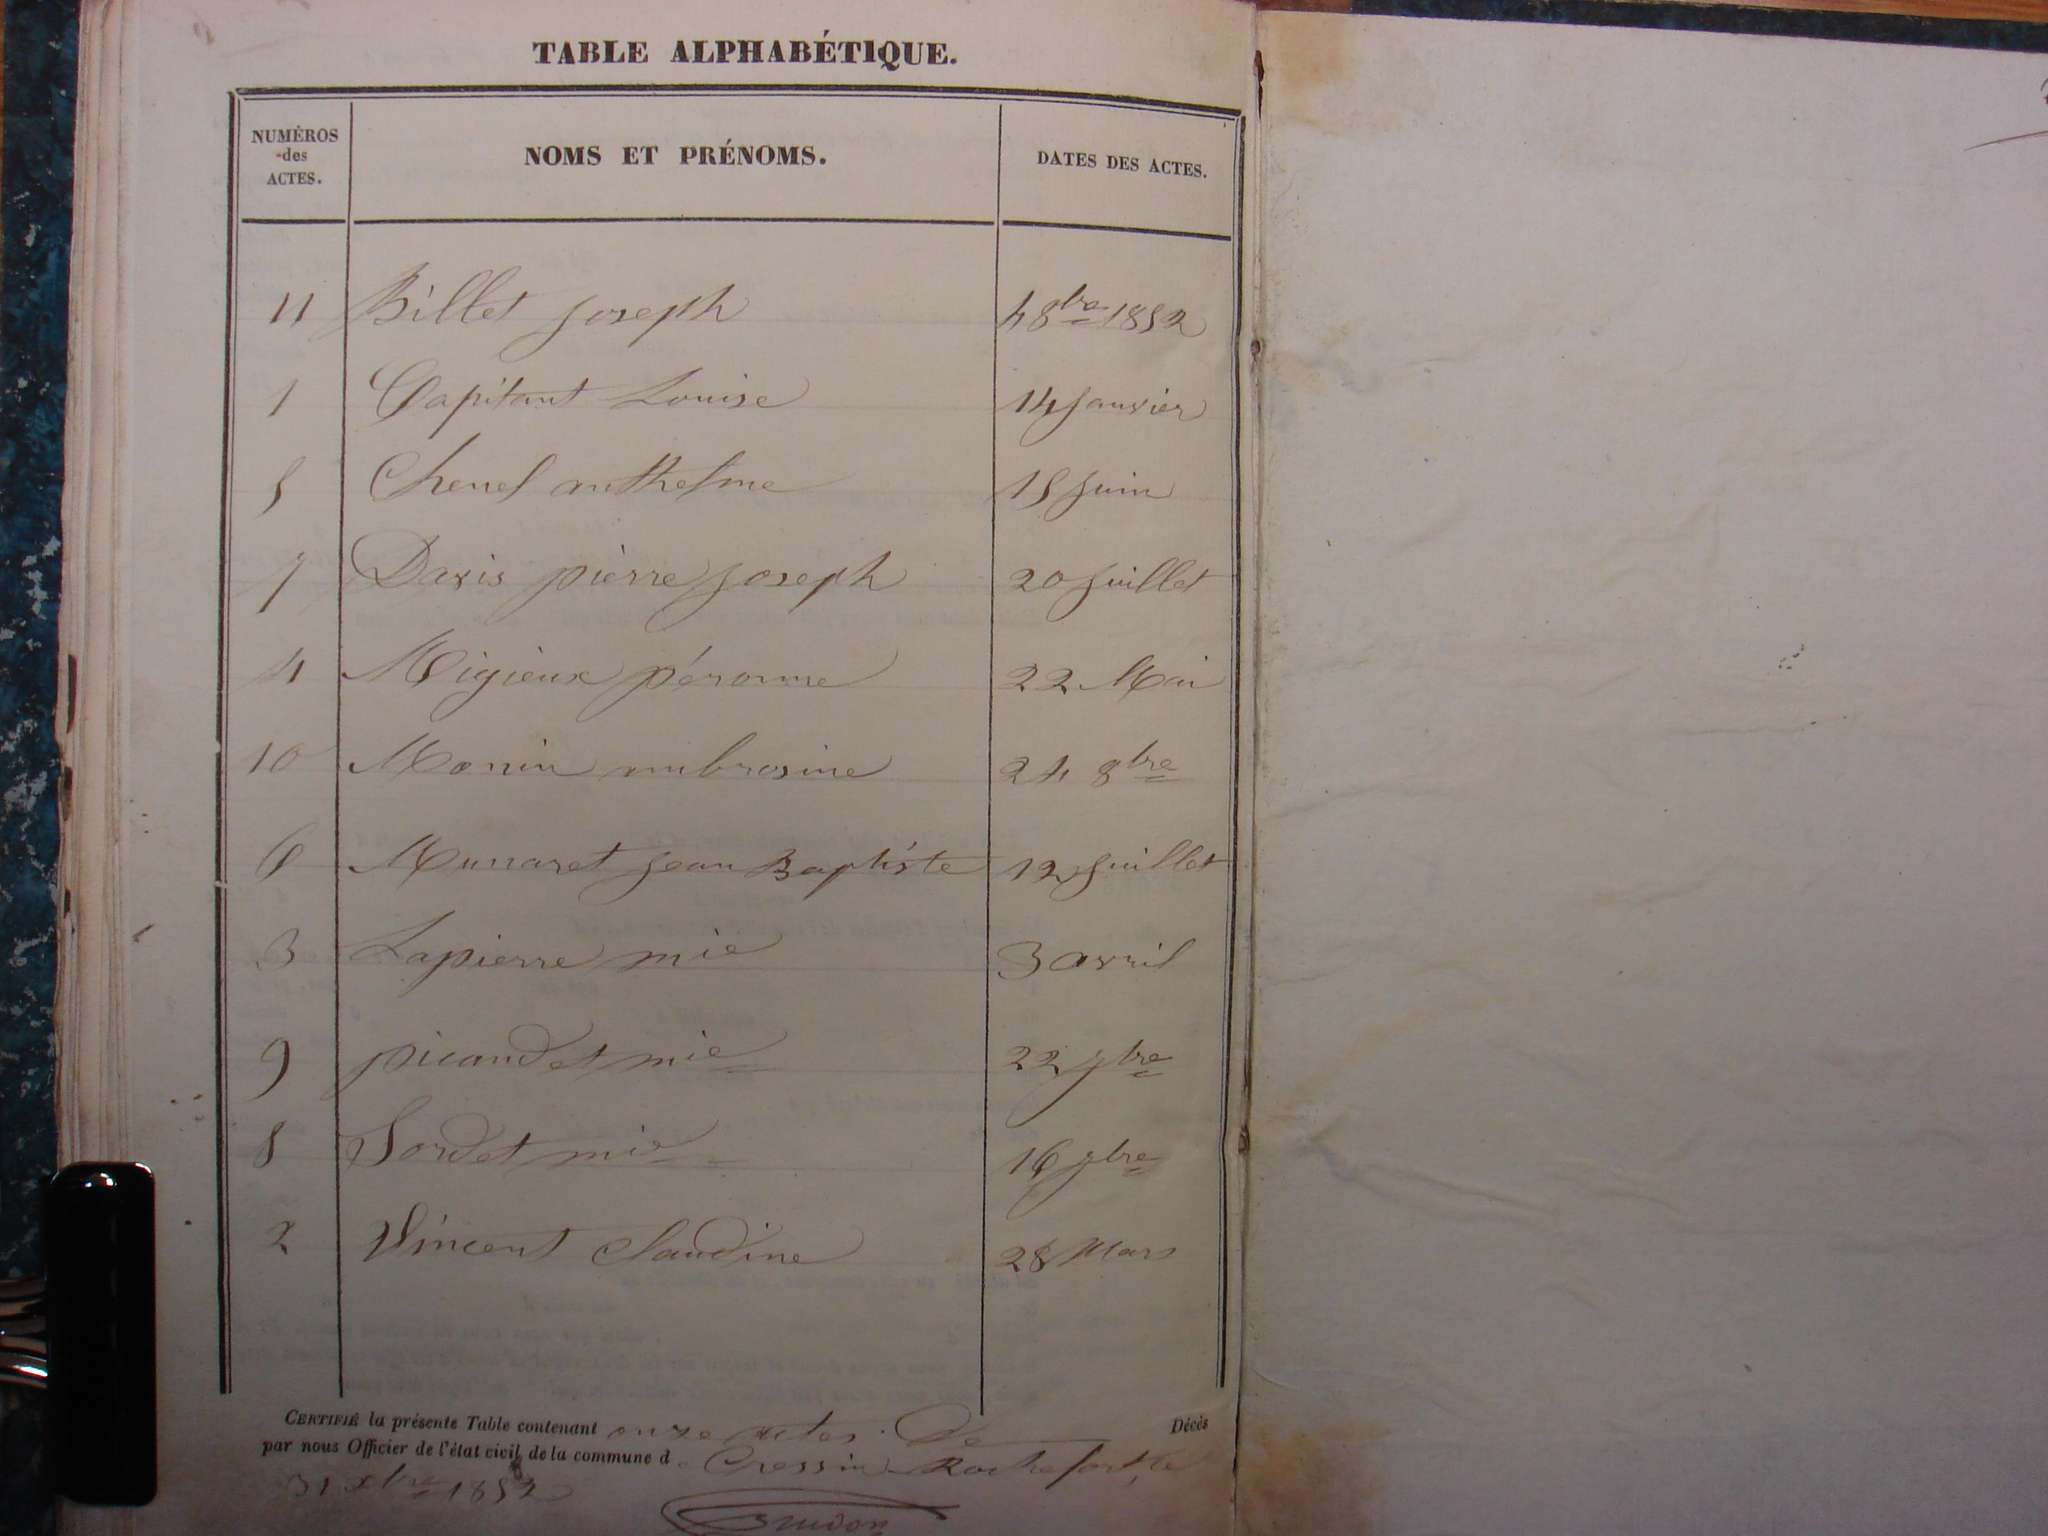 TABLE ALPHABÉTIQUE.
NUMÉROS des ACTES.
NOMS ET PRÉNOMS.
DATES DES ACTES.
11 Billet joseph 4 8bre 1852
1 Capitant Louise 14 janvier
5 Chenel anthelme 15 juin
7 Davis pierre joseph 20 juillet
4 Migieux péronne 22 Mai
10 Monin ambrosine 24 8bre
6 Munaret jean Baptiste 12 juillet
3 Lapierre mie 3 avril
9 picandet mie 22 7bre
8 Sordet mie 16 7bre
2 Vincent Claudine 28 Mars
CERTIFIÉ la présente Table contenant onze actes De Décès
par nous Officier de l'état civil de la commune d e Cressin Rochefort, le
31 xbre 1852